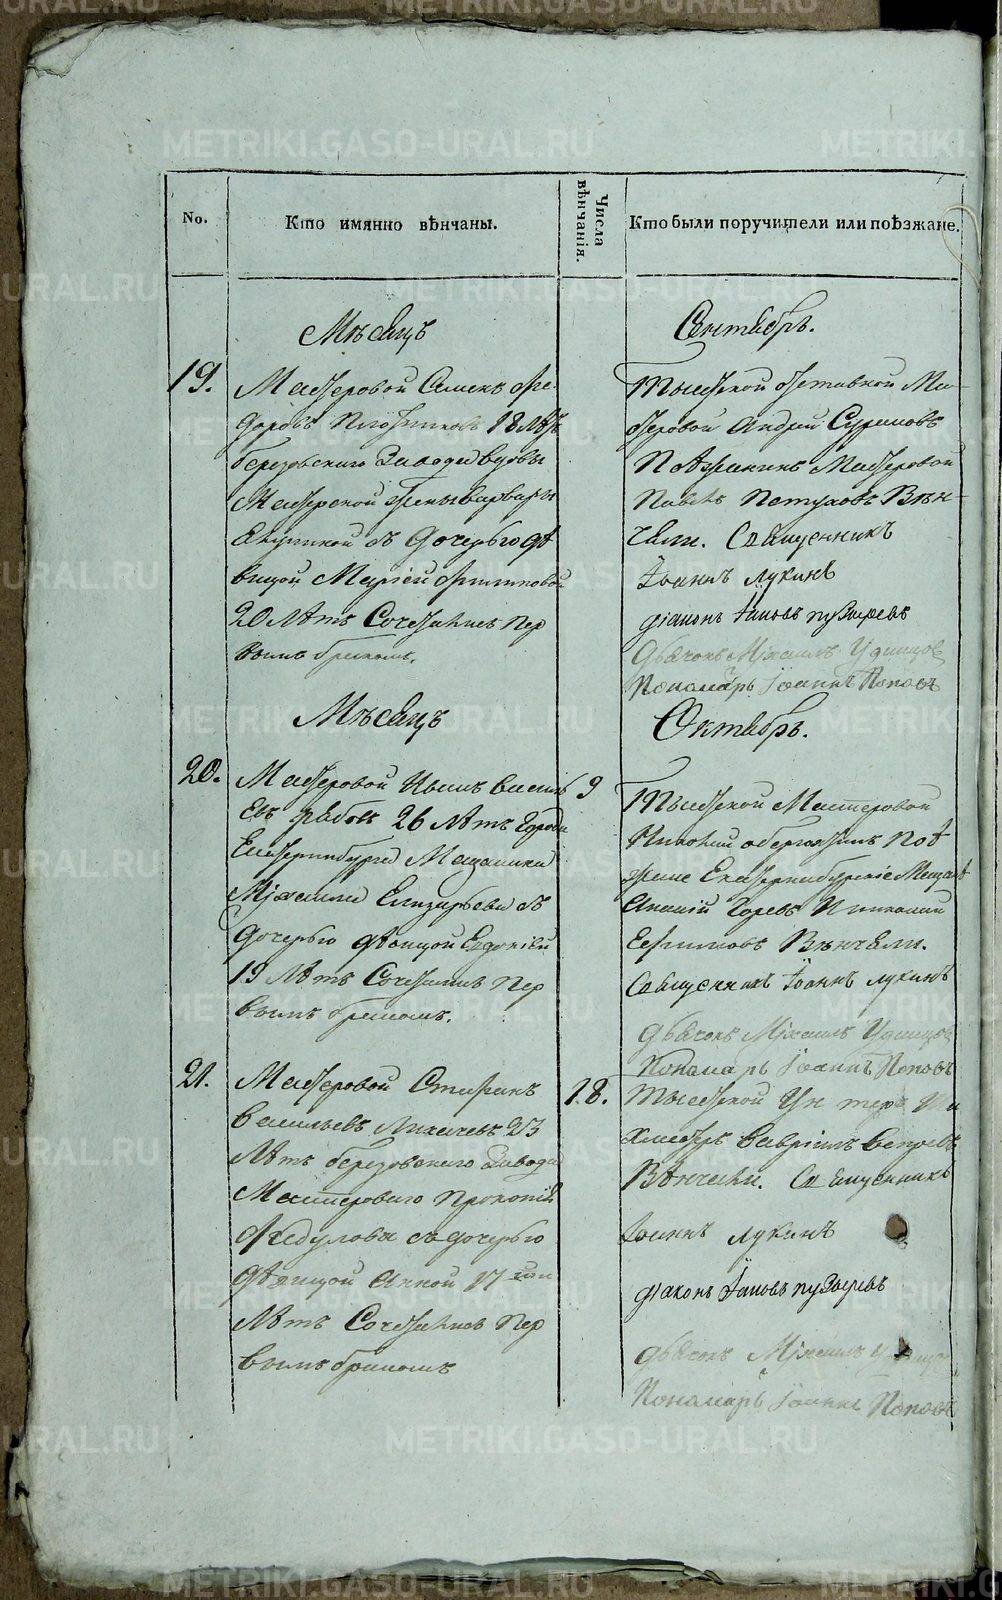 No.
Кто имянно вѣнчаны.
Числа вѣнчанія.
Кто были поручители или поѣзжане.
Мѣсяцъ
Сентябрь.
19.
Мастеровой Семенъ Фе-
доровъ Плотниковъ 18 лѣтъ
березовскаго завода вдовы
Мастерской жены варвары
съ дочерью дѣ
вицой Маріей
20 лѣтъ Сочетались пер
вымъ бракомъ.
Тысяской отставной Ма-
стеровой Андрей
Поѣзжанинъ Мастеровой
Павелъ Петуховъ Вѣн-
чали. Священникъ
Іоаннъ Лукинъ
діаконъ Іаковъ пузыревъ
Дьячокъ Михаилъ Удинцовъ
Пономарь Іоаннъ Поповъ
Мѣсяцъ
Октябрь.
20.
Мастеровой Иванъ Василь
евъ 26 лѣтъ Города
Екатеринбурга Мещанина
Михаила Елизарьева съ
дочерью дѣвицой Евдокіей
19 лѣтъ Сочетались пер
вымъ бракомъ.
9
Тысяской Мастеровой
Николай Поѣ
зжане Екатеринбургскіе Мещанѣ
Ананій Николай
Ефимовъ Вѣнчали.
Священникъ Іоаннъ Лукинъ
дьячокъ Михаилъ Удинцовъ
Пономарь Іоаннъ Поповъ
21.
Мастеровой Стефанъ
Васильевъ Лихачевъ 23
лѣтъ березовскаго завода
Мастероваго Прокопія
Федулова съ дочерью
дѣвицой Анной 17
лѣтъ Сочетались пер
вымъ бракомъ
18.
Тысяской Ун теръ Ша
хмейстеръ Вавріилъ
Вѣнчали. Священникъ
Іоаннъ Лукинъ
діаконъ Іаковъ пузыревъ
дьячокъ Михаилъ
Пономарь Іоаннъ Поповъ
METRIKI.GASO-URAL.RU